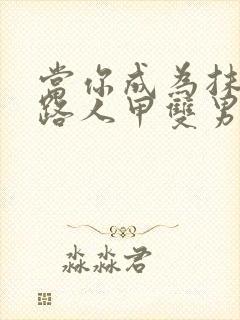 當你成為抹
路人甲雙男
淼淼君